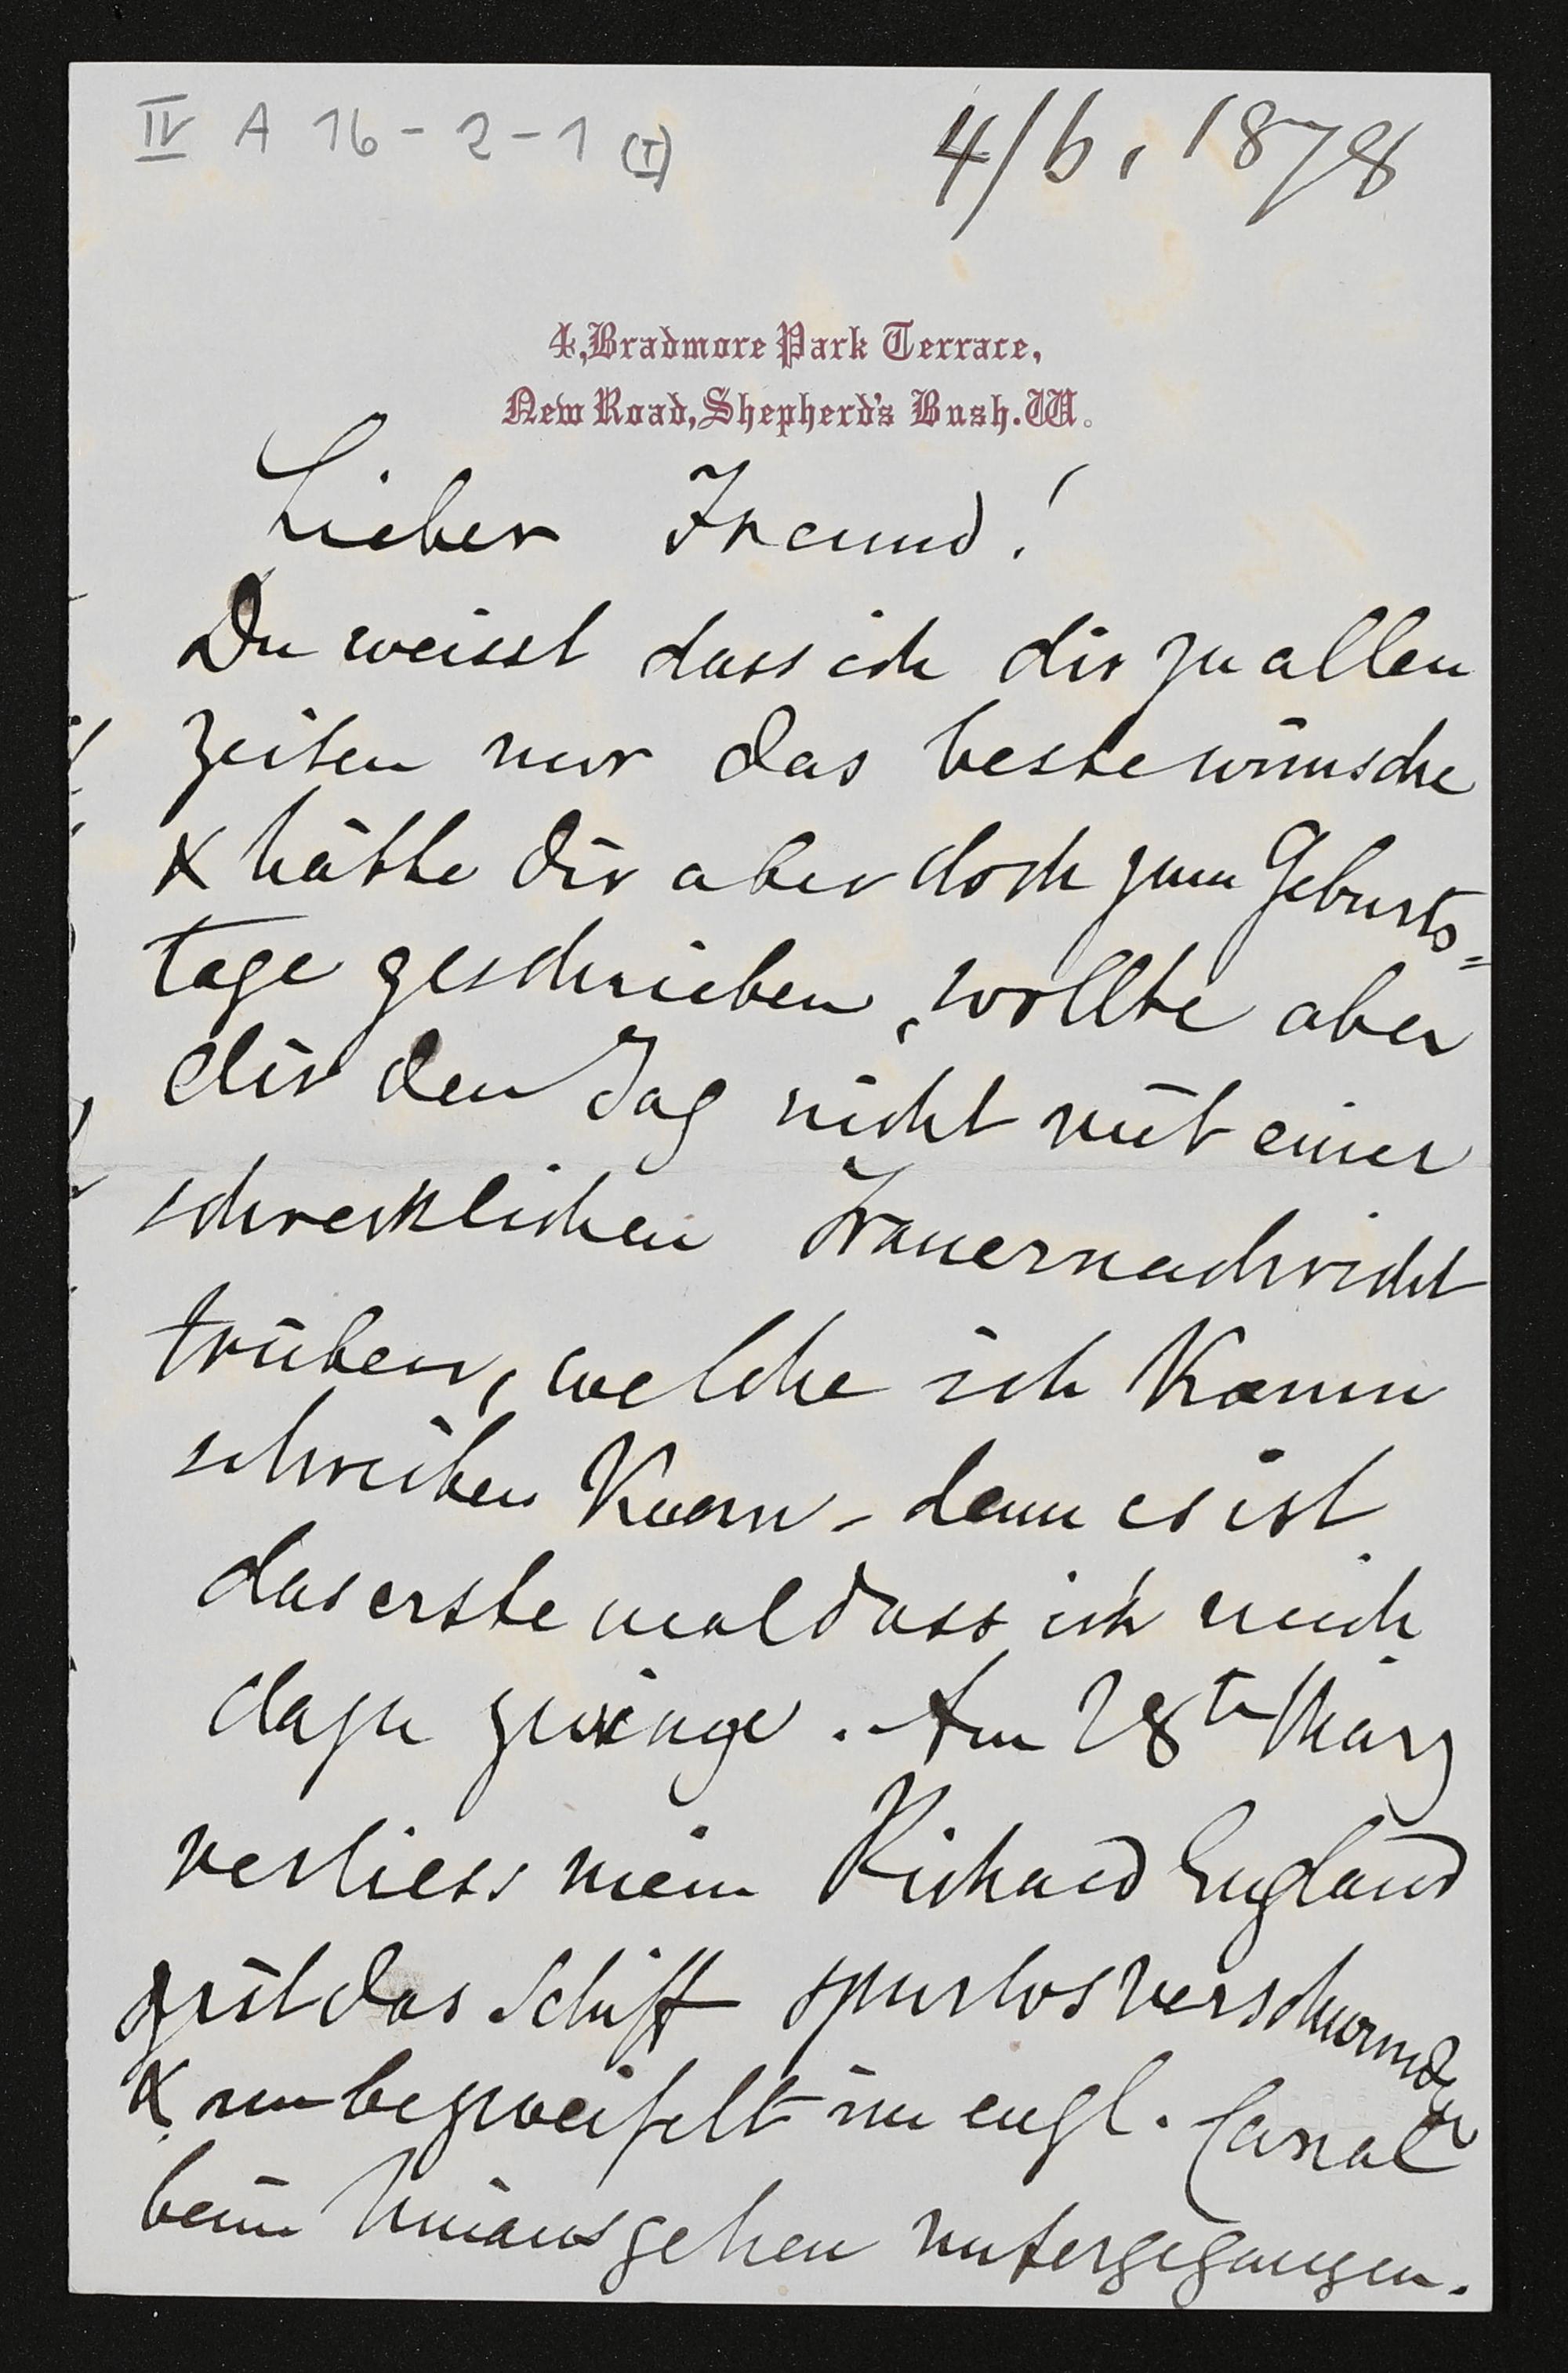 IV A 16-2-1 (I)
4/6, 1878
4, Bradmore Park Terrace,
New Road, Shepherd's Bush. W.
Lieber Freund!
Du weisst dass ich dir zu allen
Zeiten nur das beste wünsche
& hätte dir aber doch zum Geburts=
tage geschrieben, wollte aber
dir den Tag nicht mit einer
schrecklichen Trauernachricht
trüben, welche ich kaum
schreiben kann - denn es ist
das erste mal dass ich mich
dazu zwinge. - Am 28tn März
verliess mein Richard England
& ist das Schiff spurlos verschwunden
& unbezweifelt im engl. Canal
beim hinausgehen untergegangen.